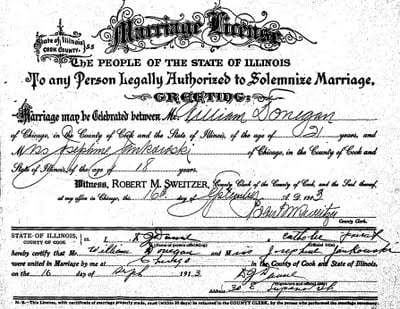 Marriage License
State of Illinois
COOK COUNTY. SS
The PEOPLE OF THE STATE OF ILLINOIS
To any Person Legally Authorized to Solemnize Marriage,
GREETING:
Marriage may be Celebrated between Mr William Donegan
of Chicago, in the County of Cook and the State of Illinois, of the age of 21 years, and
Miss Josephine Jankowski of Chicago, in the County of Cook and
State of Illinois, of the age of 18 years.
Witness, ROBERT M. SWEITZER, County Clerk of the County of Cook, and the Seal thereof,
at my office in Chicago, this 16th day of September A.D. 1913
Robert M Sweitzer
County Clerk.
STATE OF ILLINOIS, COUNTY OF COOK } ss. I, a Catholic priest
hereby certify that Mr. William Donegan and Miss Josephine Jankowski
were united in Marriage at Chicago in the County of Cook and State of Illinois,
on the 16 day of Sept 1913
N. B.—This License, with certificate of marriage properly made, must (within 30 days) be returned to the COUNTY CLERK, by the person who performed the marriage ceremony